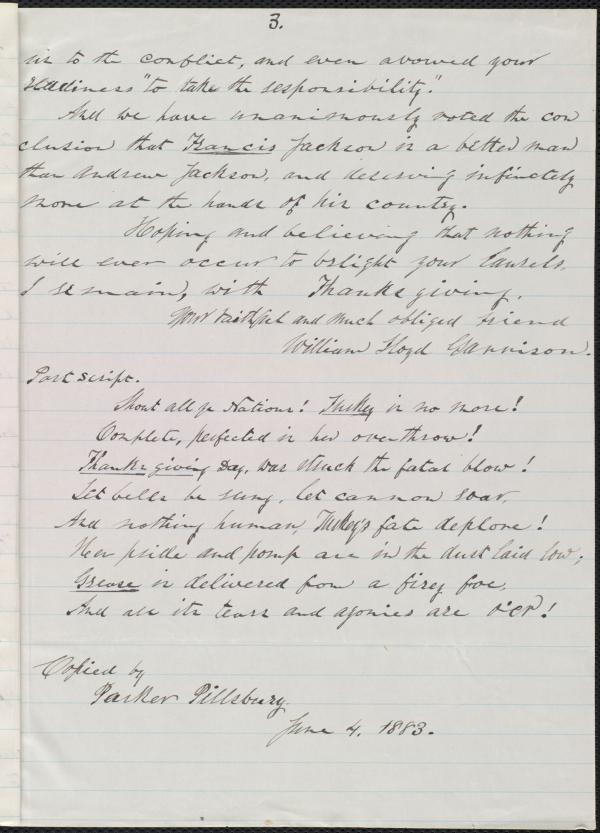 3.
us to the conflict, and even avowed your
readiness "to take the responsibility."
And we have unanimously voted the con
clusion that Francis Jackson is a better man
than Andrew Jackson, and deserving infinitely
more at the hands of his country.
Hoping and believing that nothing
will ever occur to blight your laurels,
I remain, with Thanksgiving,
Your faithful and much obliged friend
William Lloyd Garrison.
Post script.
Shout all ye Nations! Turkey is no more!
Complete, perfected is her overthrow!
Thanksgiving Day, was struck the fatal blow!
Let bells be rung, let cannon roar,
And nothing human, Turkey's fate deplore!
Her pride and pomp are in the dust laid low;
Grease is delivered from a firey foe,
And all its tears and agonies are o'er!
Copied by
Parker Pillsbury.
June 4, 1883.